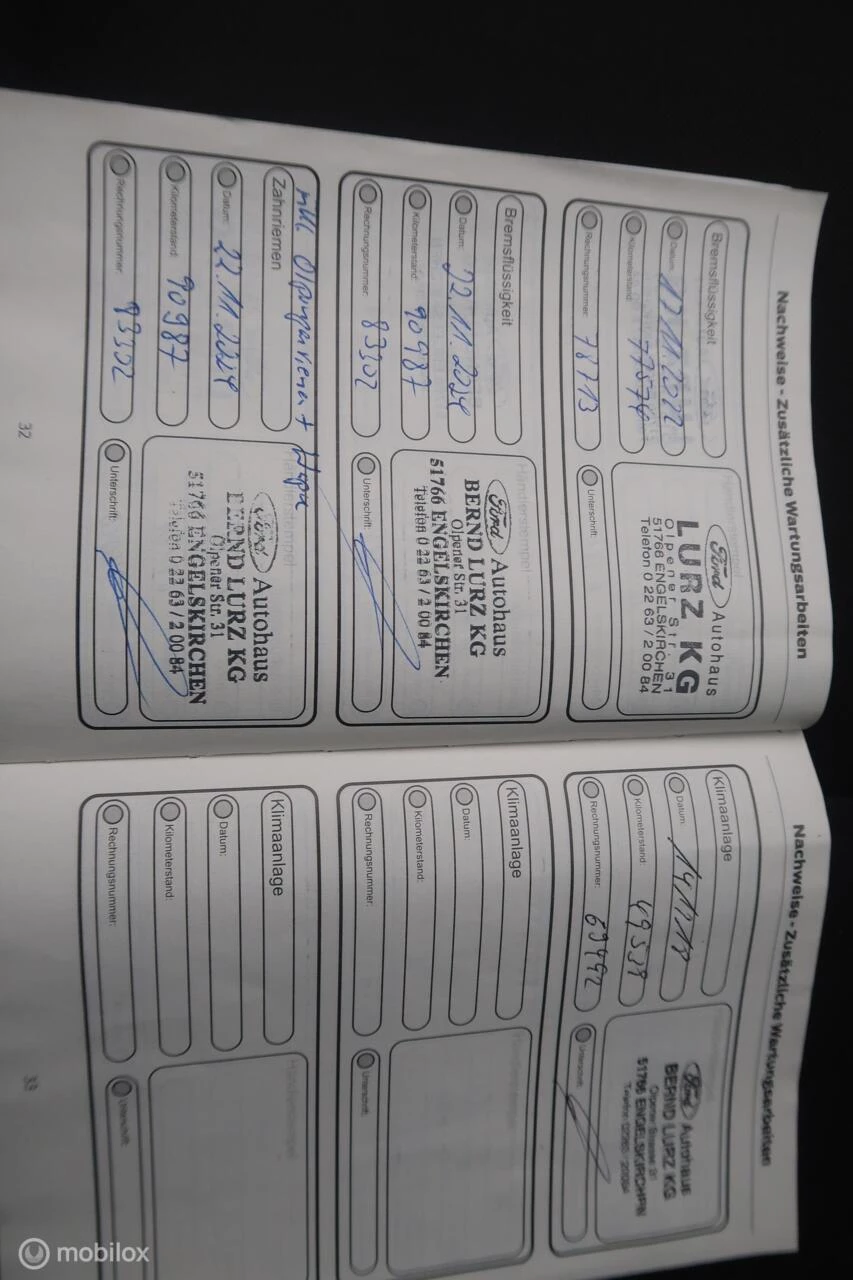 Nachweise - Zusätzliche Wartungsarbeiten
Bremsflüssigkeit
Datum: 17.11.2022
Kilometerstand: 77576
Rechnungsnummer: 78713
Händlerstempel
Ford Autohaus
LURZ KG
Olpener Str. 31
51766 ENGELSKIRCHEN
Telefon 0 22 63 / 2 00 84
Unterschrift:
Bremsflüssigkeit
Datum: 22.11.2024
Kilometerstand: 90987
Rechnungsnummer: 83302
Händlerstempel
Ford Autohaus
BERND LURZ KG
Olpener Str. 31
51766 ENGELSKIRCHEN
Telefon 0 22 63 / 2 00 84
Unterschrift:
Zahnriemen
Datum: 22.11.2024
Kilometerstand: 90987
Rechnungsnummer: 83302
Händlerstempel
Ford Autohaus
BERND LURZ KG
Olpener Str. 31
51766 ENGELSKIRCHEN
Telefon 0 22 63 / 2 00 84
Unterschrift:
32
Nachweise - Zusätzliche Wartungsarbeiten
Klimaanlage
Datum:
Kilometerstand: 49539
Rechnungsnummer: 69992
Ford Autohaus
BERND LURZ KG
Olpener Strasse 31
51766 ENGELSKIRCHEN
Telefon 02263 - 20084
Unterschrift:
Klimaanlage
Datum:
Kilometerstand:
Rechnungsnummer:
Händlerstempel
Unterschrift:
Klimaanlage
Datum:
Kilometerstand:
Rechnungsnummer:
Händlerstempel
Unterschrift:
33
mobilox